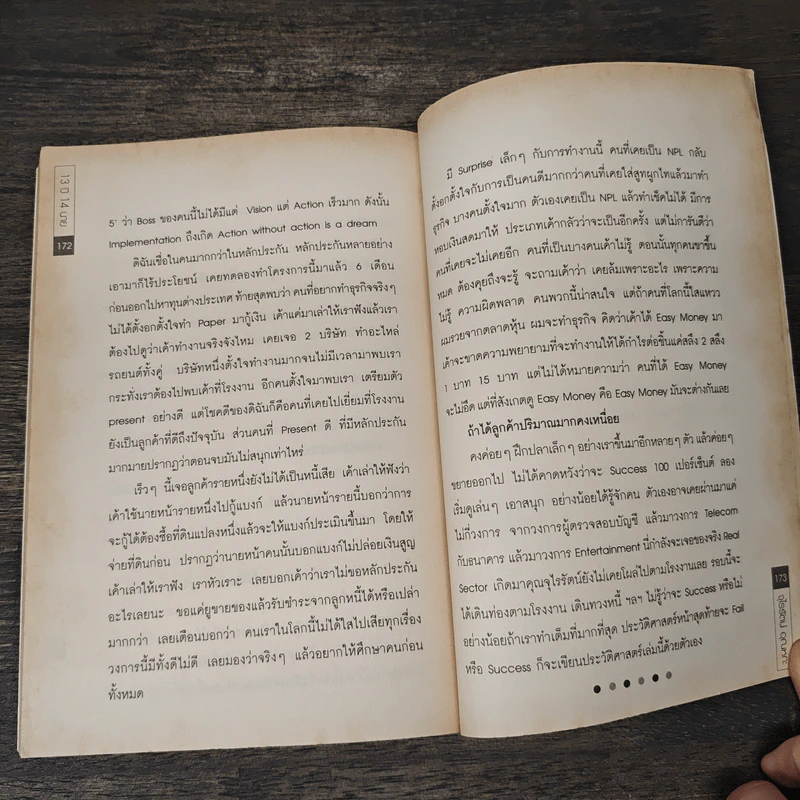 13 ปี 14 นาย
172
5' ว่า Boss ของคนนี้ไม่ได้มีแต่ Vision แต่ Action เร็วมาก ดังนั้น
Implementation ถึงเกิด Action without action is a dream
ดิฉันเชื่อในคนมากกว่าในหลักประกัน หลักประกันหลายอย่าง
เอามาก็ไร้ประโยชน์ เคยทดลองทำโครงการนี้มาแล้ว 6 เดือน
ก่อนออกไปหาทุนต่างประเทศ ท้ายสุดพบว่า คนที่อยากทำธุรกิจจริงๆ
ไม่ได้ตั้งอกตั้งใจทำ Paper มากู้เงิน เค้าแค่มาเล่าให้เราฟังแล้วเรา
ต้องไปดูว่าเค้าทำงานจริงจังไหม เคยเจอ 2 บริษัท ทำอะไหล่
รถยนต์ทั้งคู่ บริษัทหนึ่งตั้งใจทำงานมากจนไม่มีเวลามาพบเรา
กระทั่งเราต้องไปพบเค้าที่โรงงาน อีกคนตั้งใจมาพบเรา เตรียมตัว
present อย่างดี แต่โชคดีของดิฉันก็คือคนที่เคยไปเยี่ยมที่โรงงาน
ยังเป็นลูกค้าที่ดีถึงปัจจุบัน ส่วนคนที่ Present ดี ที่มีหลักประกัน
มากมายปรากฏว่าตอนจบมันไม่สนุกเท่าไหร่
เร็วๆ นี้เจอลูกค้ารายหนึ่งยังไม่ได้เป็นหนี้เสีย เค้าเล่าให้ฟังว่า
เค้าใช้นายหน้ารายหนึ่งไปกู้แบงก์ แล้วนายหน้ารายนี้บอกว่าการ
จะกู้ได้ต้องซื้อที่ดินแปลงหนึ่งแล้วจะให้แบงก์ประเมินขึ้นมา โดยให้
จ่ายที่ดินก่อน ปรากฏว่านายหน้าคนนั้นบอกแบงก์ไม่ปล่อยเงินสูญ
เค้าเล่าให้เราฟัง เราหัวเราะ เลยบอกเค้าว่าเราไม่ขอหลักประกัน
อะไรเลยนะ ขอแค่ยูขายของแล้วรับชำระจากลูกหนี้ได้หรือเปล่า
มากกว่า เลยเตือนบอกว่า คนเราในโลกนี้ไม่ได้ใสไปเสียทุกเรื่อง
วงการนี้มีทั้งดีไม่ดี เลยมองว่าจริงๆ แล้วอยากให้ศึกษาคนก่อน
ทั้งหมด
มี Surprise เล็กๆ กับการทำงานนี้ คนที่เคยเป็น NPL กลับ
ตั้งอกตั้งใจกับการเป็นคนดีมากกว่าคนที่เคยใส่สูทผูกไทแล้วมาทำ
ธุรกิจ บางคนตั้งใจมาก ตัวเองเคยเป็น NPL แล้วทำเช็คไม่ได้ มีการ
หอบเงินสดมาให้ ประเภทเค้ากลัวว่าจะเป็นอีกครั้ง แต่ไม่การันตีว่า
คนที่เคยจะไม่เคยอีก คนที่เป็นบางคนเค้าไม่รู้ ตอนนั้นทุกคนขาขึ้น
หมด ต้องคุยถึงจะรู้ จะถามเค้าว่า เคยล้มเพราะอะไร เพราะความ
ไม่รู้ ความผิดพลาด คนพวกนี้น่าสนใจ แต่ถ้าคนที่โลกนี้ใสแหวว
ผมรวยจากตลาดหุ้น ผมจะทำธุรกิจ คิดว่าเค้าได้ Easy Money มา
เค้าจะขาดความพยายามที่จะทำงานให้ได้กำไรต่อชิ้นแค่สลึง 2 สลึง
1 บาท 15 บาท แต่ไม่ได้หมายความว่า คนที่ได้ Easy Money
จะไม่อึด แต่ที่สังเกตดู Easy Money คือ Easy Money มันจะต่างกันเลย
ถ้าได้ลูกค้าปริมาณมากคงเหนื่อย
คงค่อยๆ ฝึกปลาเล็กๆ อย่างเราขึ้นมาอีกหลายๆ ตัว แล้วค่อยๆ
ขยายออกไป ไม่ได้คาดหวังว่าจะ Success 100 เปอร์เซ็นต์ ลอง
เริ่มดูเล่นๆ เอาสนุก อย่างน้อยได้รู้จักคน ตัวเองอาจเคยผ่านมาแค่
ไม่กี่วงการ จากวงการผู้ตรวจสอบบัญชี แล้วมาวงการ Telecom
กับธนาคาร แล้วมาวงการ Entertainment นี่กำลังจะเจอของจริง Real
Sector เกิดมาคุณจุไรรัตน์ยังไม่เคยโผล่ไปตามโรงงานเลย รอบนี้จะ
ได้เดินท่องตามโรงงาน เดินทวงหนี้ ฯลฯ ไม่รู้ว่าจะ Success หรือไม่
อย่างน้อยถ้าเราทำเต็มที่มากที่สุด ประวัติศาสตร์หน้าสุดท้ายจะ Fail
หรือ Success ก็จะเขียนประวัติศาสตร์เล่มนี้ด้วยตัวเอง
173